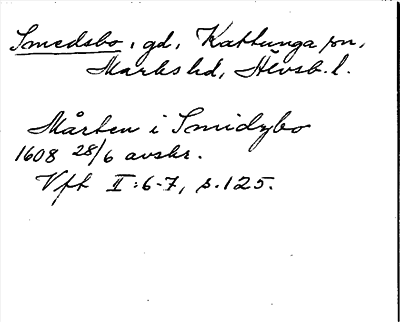 Smedsbo, gd, Kattunga sn,
Marks hd, Älvsb. l.
Mårten i Smidzbo
1608 28/6 avskr.
Vft II:6-7, s. 125.